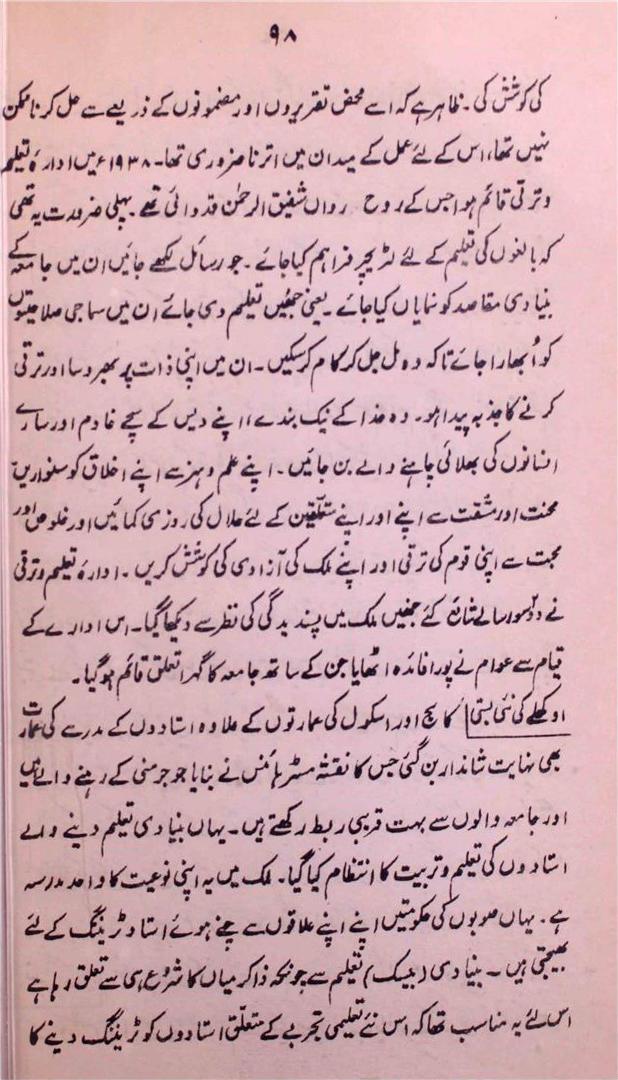 ۹۸
کی کوشش کی۔ ظاہر ہے کہ اسے محض تقریروں اور مضمونوں کے ذریعے سے حل کرنا ممکن
نہیں تھا، اس کے لئے عمل کے میدان میں اترنا ضروری تھا۔ ۱۹۳۸ء میں ادارۂ تعلیم
و ترقی قائم ہوا جس کے روح رواں شفیق الرحمٰن قدوائی تھے۔ پہلی ضرورت یہ تھی
کہ بالغوں کی تعلیم کے لئے لٹریچر فراہم کیا جائے۔ جو رسائل لکھے جائیں ان میں جامعہ کے
بنیادی مقاصد کو نمایاں کیا جائے۔ یعنی جنھیں تعلیم دی جائے ان میں سماجی صلاحیتوں
کو اُبھارا جائے تاکہ وہ مل جل کر کام کر سکیں۔ ان میں اپنی ذات پر بھروسا اور ترقی
کرنے کا جذبہ پیدا ہو۔ وہ خدا کے نیک بندے، اپنے دیس کے سچے خادم اور سارے
انسانوں کی بھلائی چاہنے والے بن جائیں۔ اپنے علم و ہنر سے اپنے اخلاق کو سنواریں
محنت اور مشقت سے اپنے اور اپنے متعلقین کے لئے حلال کی روزی کمائیں اور خلوص اور
محبت سے اپنی قوم کی ترقی اور اپنے ملک کی آزادی کی کوشش کریں۔ ادارۂ تعلیم و ترقی
نے دو سو رسالے شائع کئے جنھیں ملک میں پسندیدگی کی نظر سے دیکھا گیا۔ اس ادارے کے
قیام سے عوام نے پورا فائدہ اٹھایا جن کے ساتھ جامعہ کا گہرا تعلق قائم ہو گیا۔
اوکھلے کی نئی بستی کالج اور اسکول کی عمارتوں کے علاوہ استادوں کے مدرسے کی عمارت
بھی نہایت شاندار بن گئی جس کا نقشہ مسٹر ہائنس نے بنایا جو جرمنی کے رہنے والے ہیں
اور جامعہ والوں سے بہت قریبی ربط رکھتے ہیں۔ یہاں بنیادی تعلیم دینے والے
استادوں کی تعلیم و تربیت کا انتظام کیا گیا۔ ملک میں یہ اپنی نوعیت کا واحد مدرسہ
ہے۔ یہاں صوبوں کی حکومتیں اپنے اپنے علاقوں سے چنے ہوئے استاد ٹریننگ کے لئے
بھیجتی ہیں۔ بنیادی (بیسک) تعلیم سے چونکہ ذاکر میاں کا شروع ہی سے تعلق رہا ہے
اس لئے یہ مناسب تھا کہ اس نئے تعلیمی تجربے کے متعلق استادوں کو ٹریننگ دینے کا